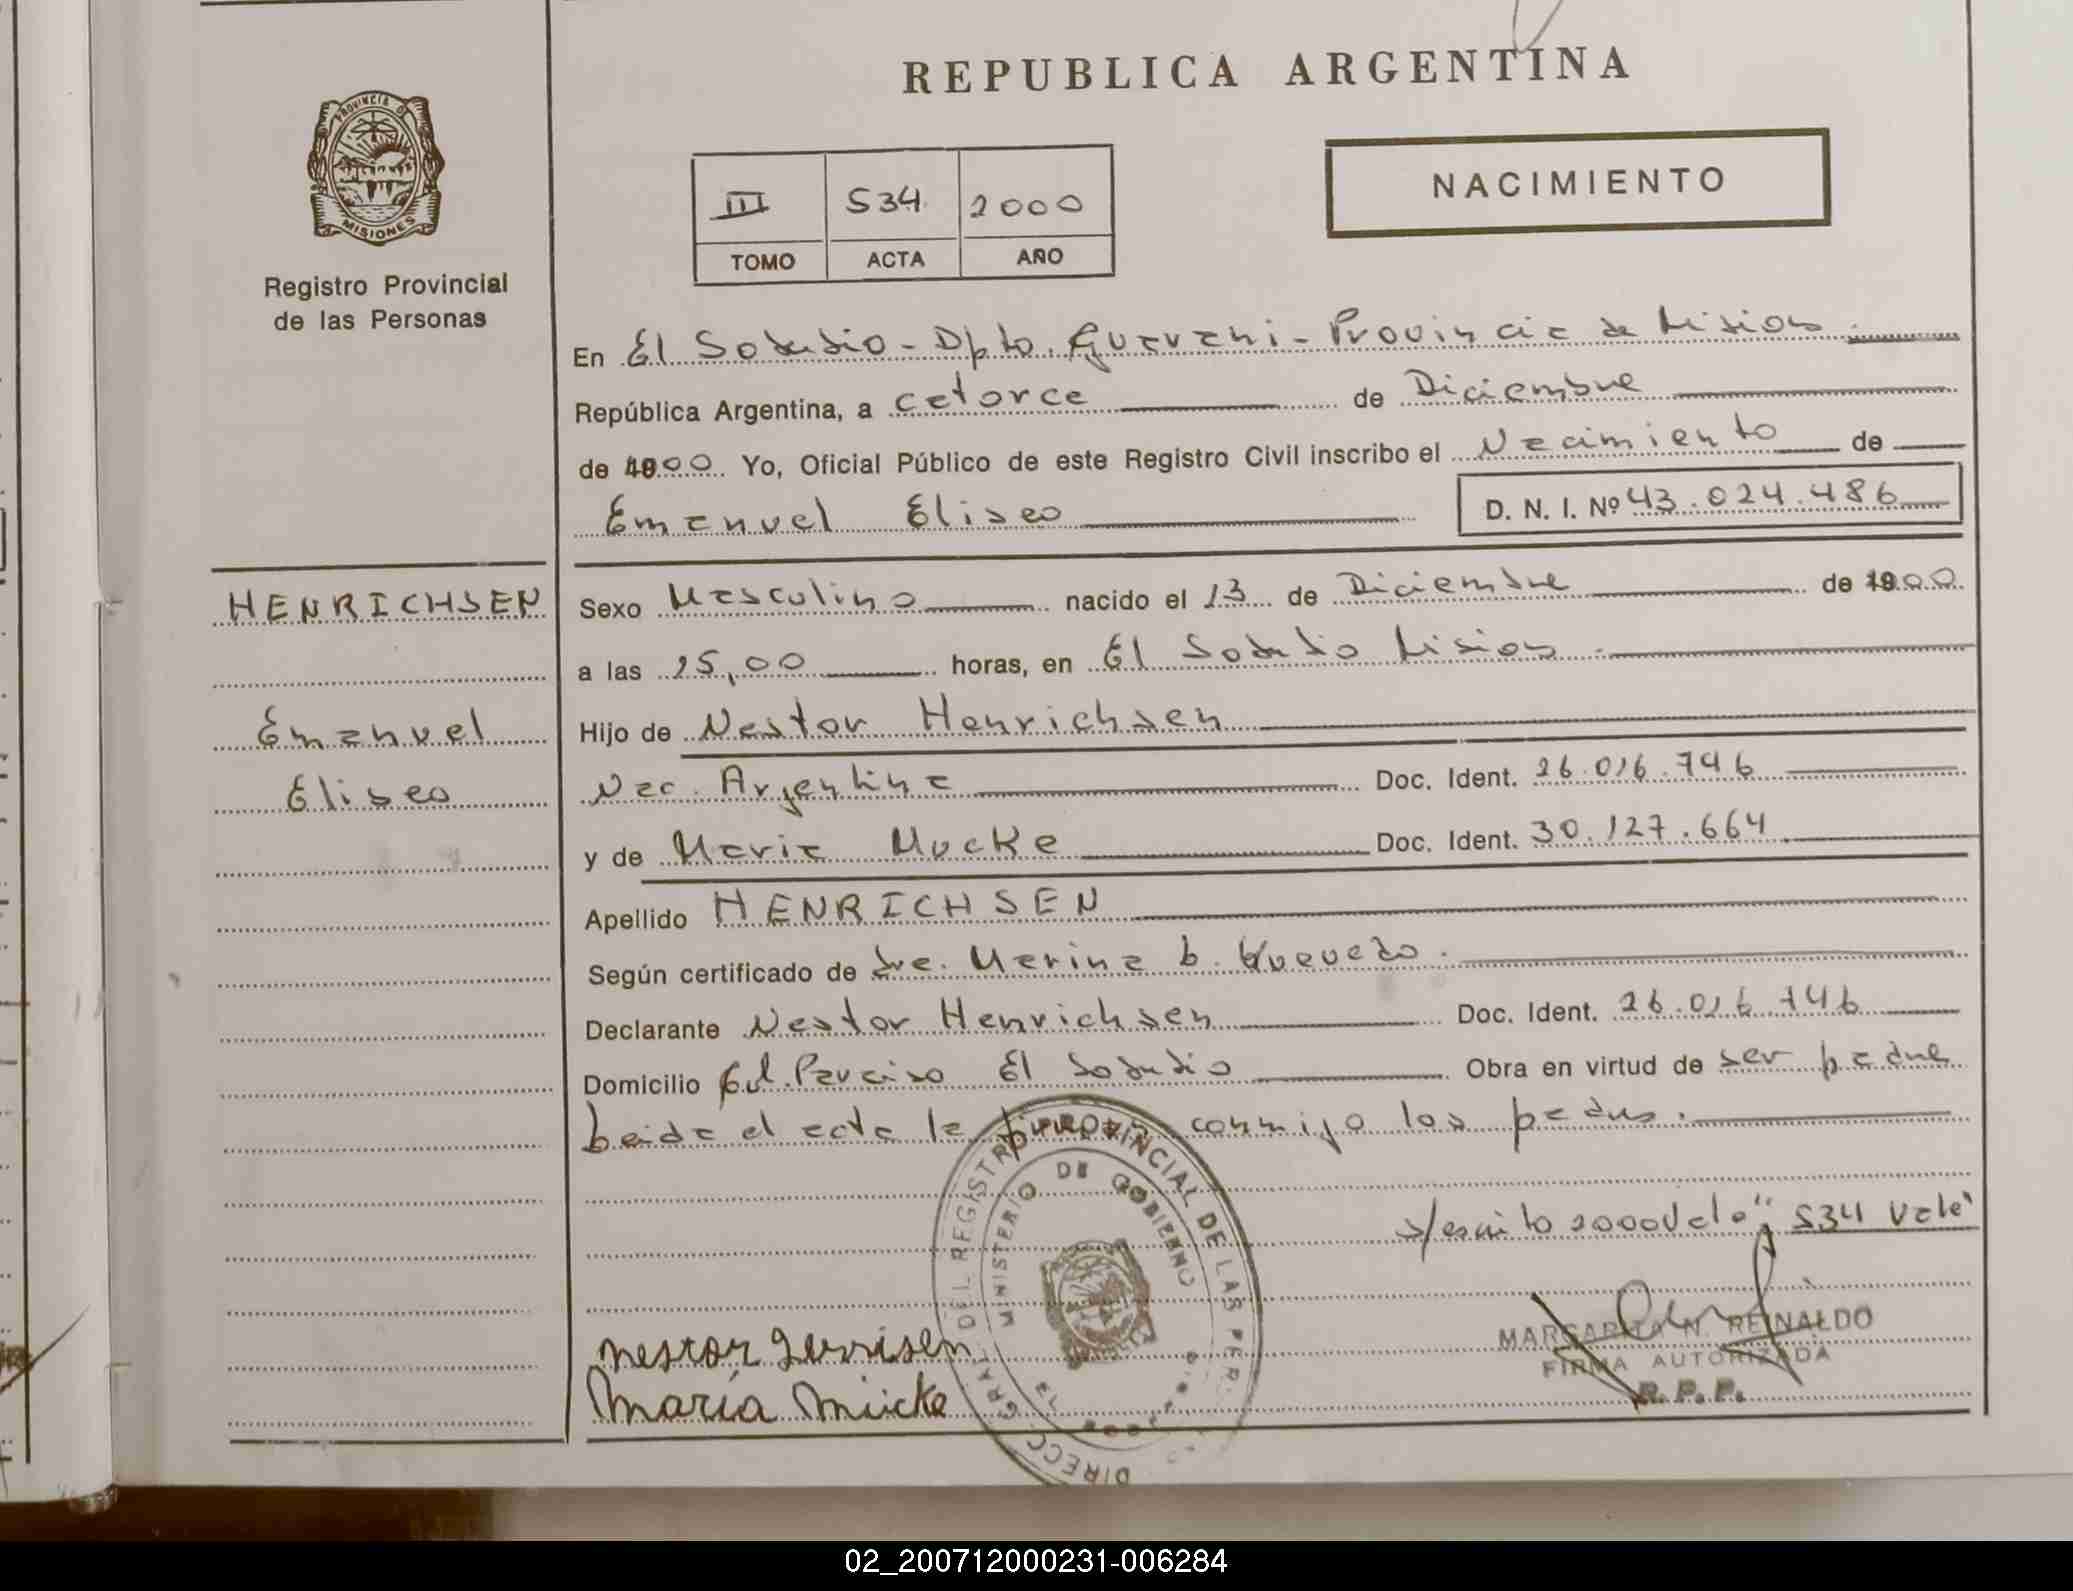 REPUBLICA ARGENTINA
PROVINCIA DE
MISIONES
Registro Provincial
de las Personas
III 534 2000
TOMO ACTA AÑO
NACIMIENTO
En El Soberbio - Dpto. Guarani - Provincia de Misiones
República Argentina, a catorce de Diciembre
de 2000 Yo, Oficial Público de este Registro Civil inscribo el Nacimiento de
Emanuel Eliseo D. N. I. Nº 43.024.486
HENRICHSEN
Emanuel
Eliseo
Sexo Masculino nacido el 13 de Diciembre de 2000
a las 15,00 horas, en El Soberbio Misiones
Hijo de Nestor Henrichsen
Nac. Argentina Doc. Ident. 26.016.746
y de Maria Mucke Doc. Ident. 30.127.664
Apellido HENRICHSEN
Según certificado de Dra. Marina B. Quevedo.
Declarante Nestor Henrichsen Doc. Ident. 26.016.746
Domicilio Col. Paraiso El Soberbio Obra en virtud de ser padre
Leida el acta la firman conmigo los padres.
s/escrito 2000 Vale 534 Vale
nestor
María Mücke
DIRECC. GRAL. DEL REGISTRO PROVINCIAL DE LAS PER.
MINISTERIO DE GOBIERNO
MARGARITA N. REINALDO
FIRMA AUTORIZADA
R. P. P.
02_200712000231-006284